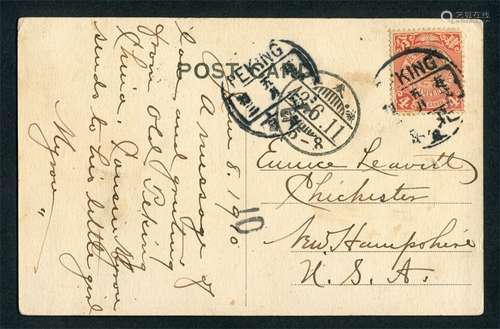 POST CARD
PEKING
KING
43.6.11
June 8. 1910
A message of
love and greeting
from old Peking
China. Cousin Myron
sends to his little girl
Myron
10
Eunice Leavitt
Chichester
New Hampshire
U. S. A.